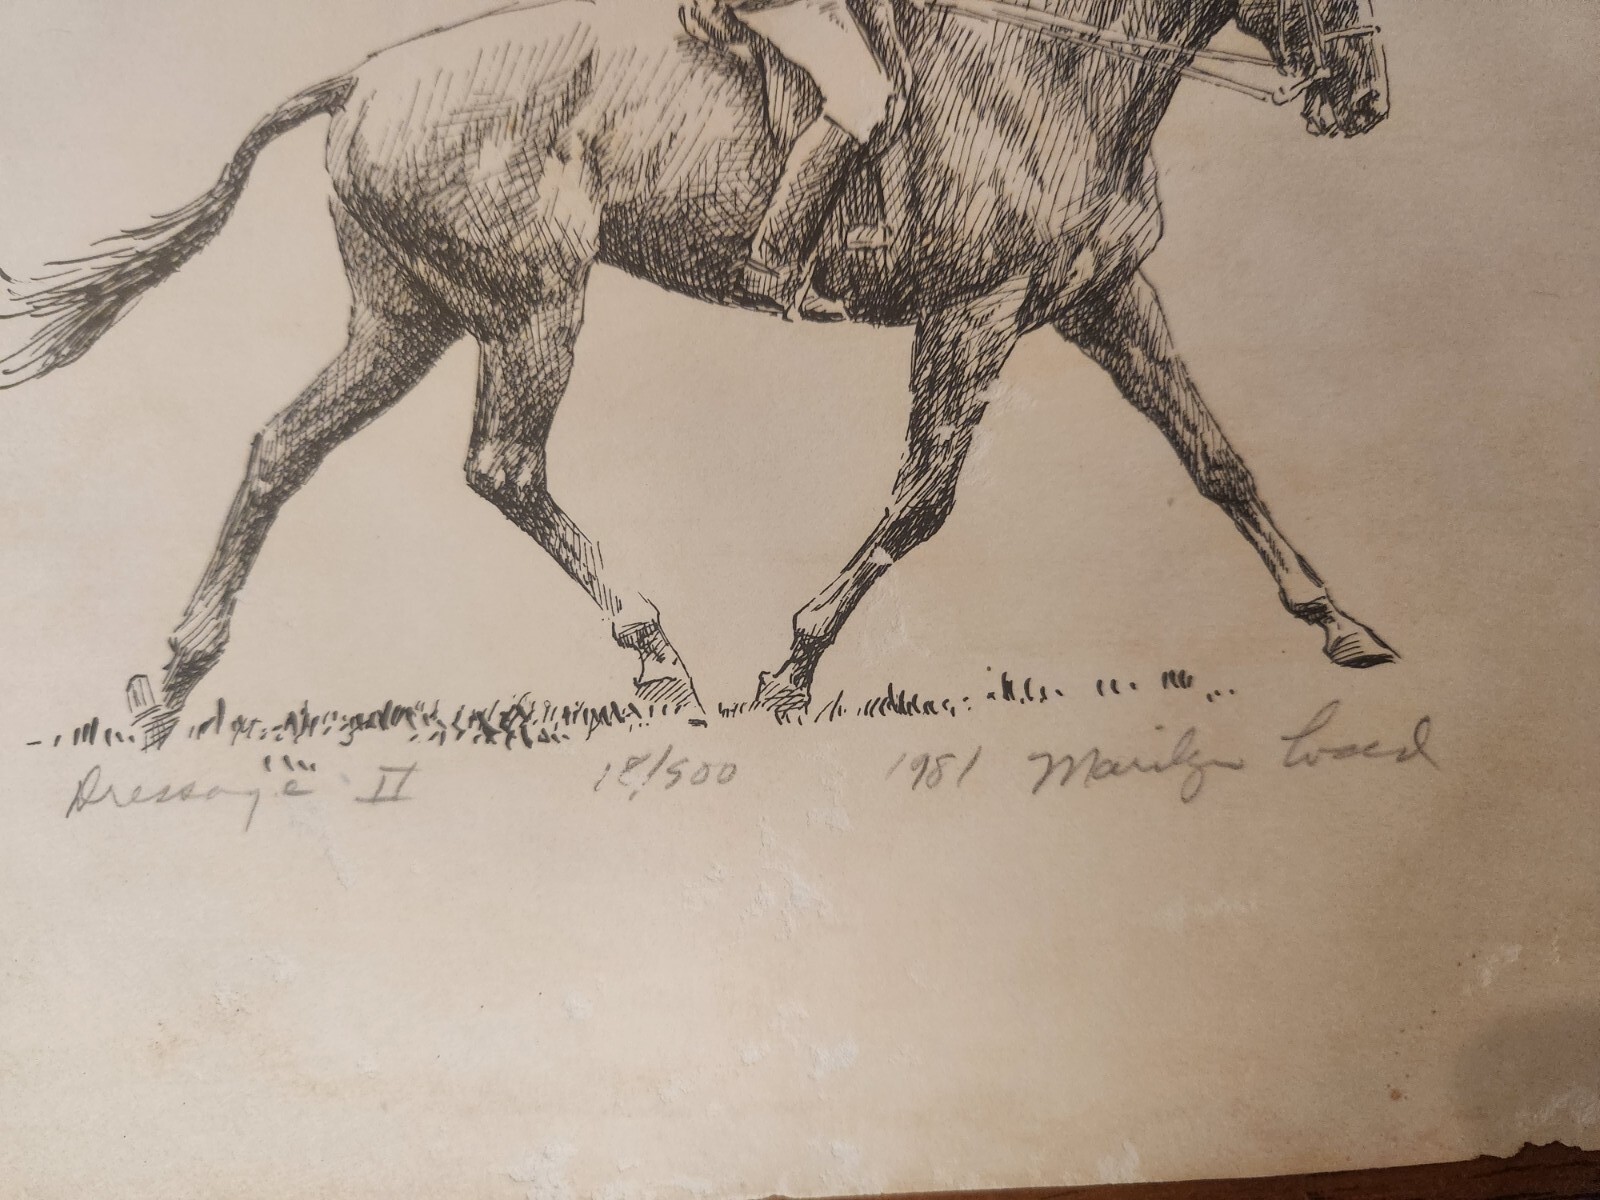 Dressage II 18/500 1981 Marilyn